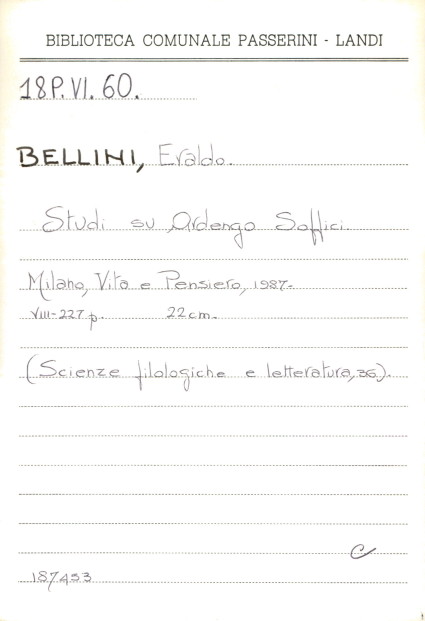 BIBLIOTECA COMUNALE PASSERINI - LANDI
18P.VI.60.
BELLINI, Eraldo.
Studi su Ardengo Soffici.
Milano, Vita e Pensiero, 1987.
VIII-227 p. 22 cm.
(Scienze filologiche e letteratura, 36).
C
187453